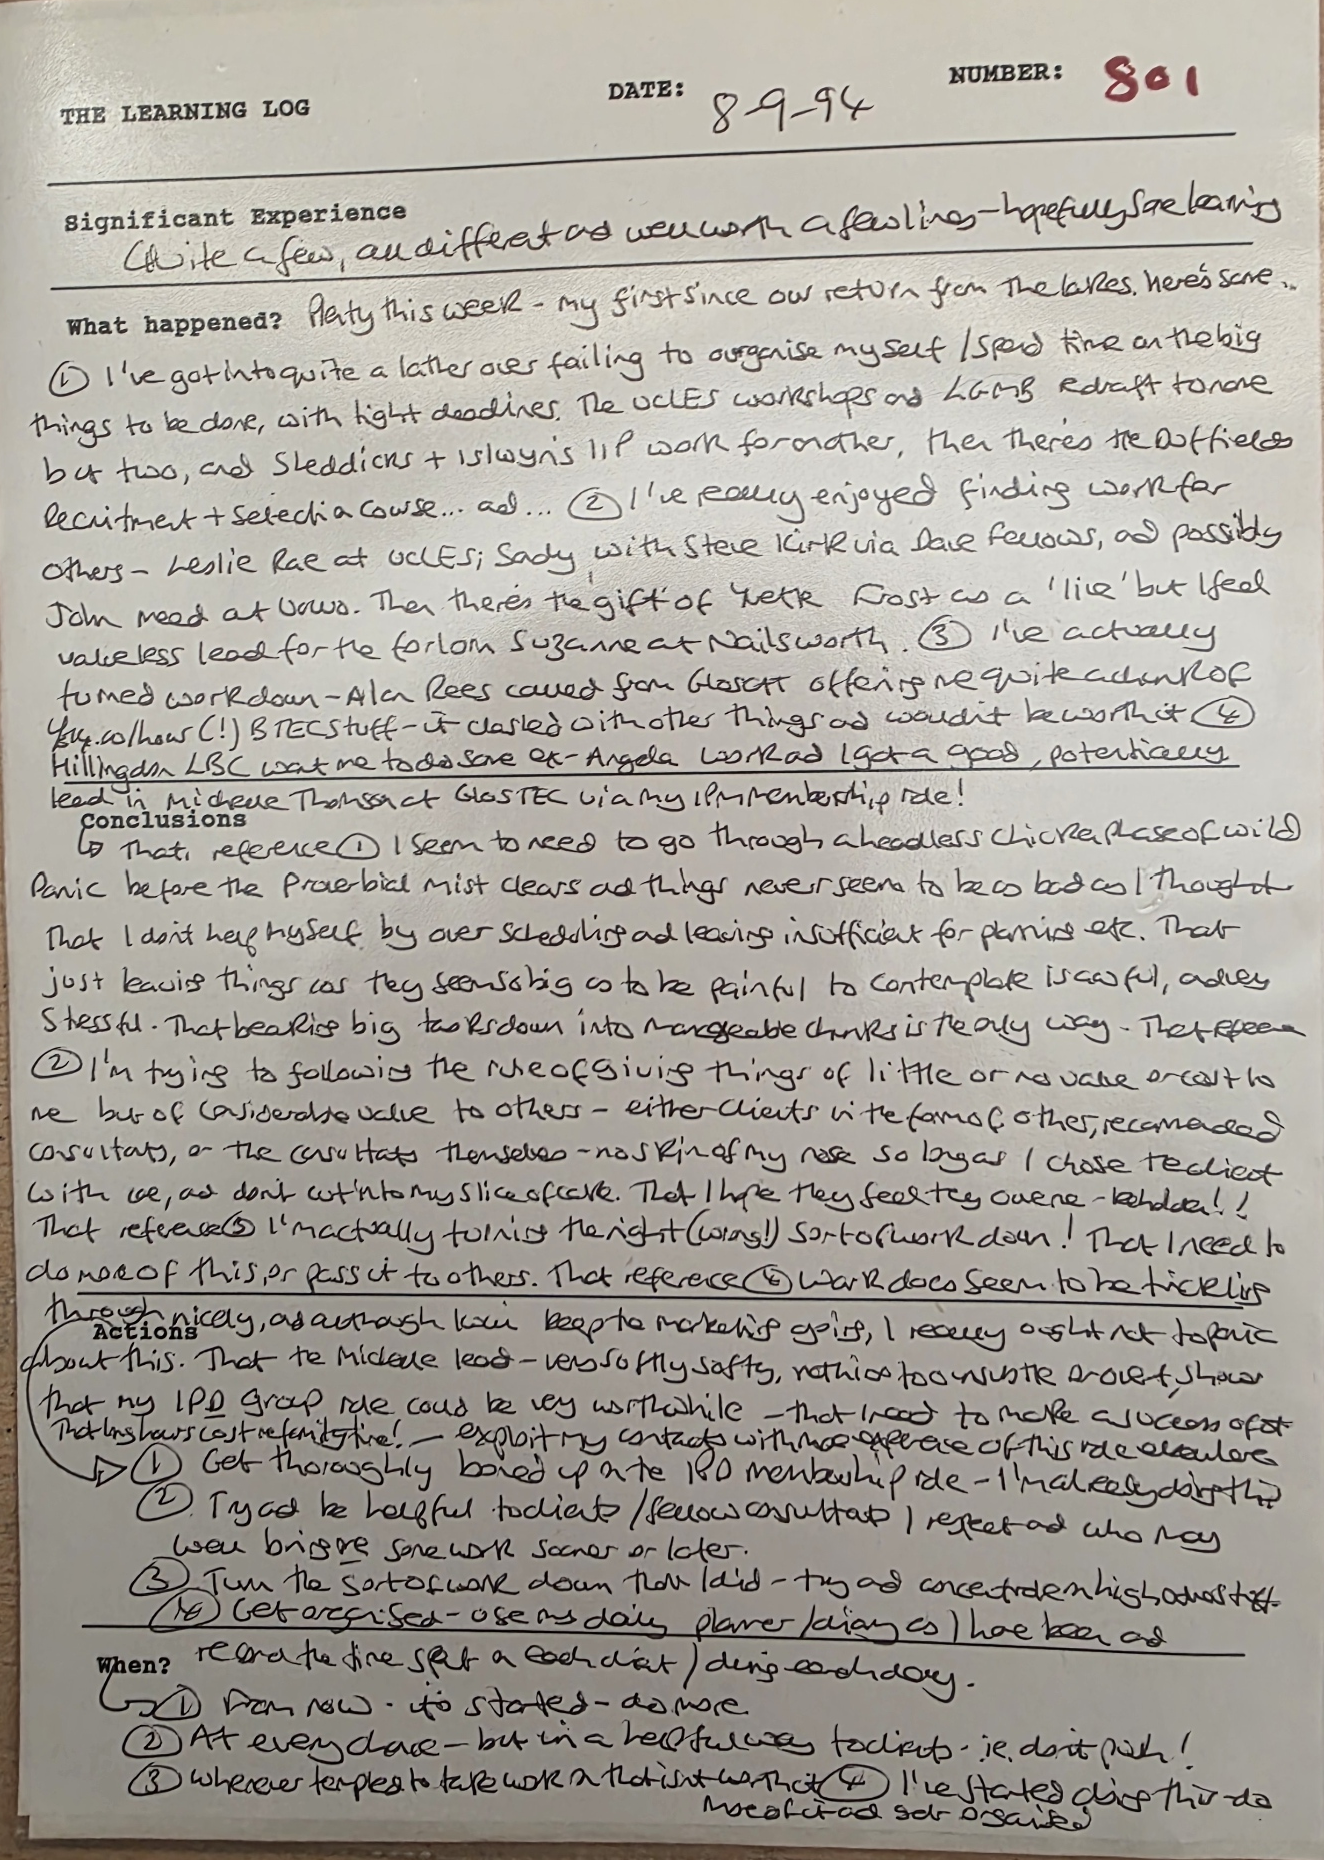 THE LEARNING LOG DATE: 8-9-94 NUMBER: 801
Significant Experience
Quite a few, all different and well worth a few lines - hopefully some learning
What happened? Plenty this week - my first since our return from The Lakes. here's some...
① I've got into quite a lather over failing to organise myself / spend time on the big
things to be done, with tight deadlines. The UCLES workshops and LGMB redraft to name
but two, and Sleddicks + Islwyn's IIP work for another, then there's the Duffields
Recruitment + Selection Course... and... ② I've really enjoyed finding work for
others - Leslie Rae at UCLES; Sandy with Steve Kirk via Dave Fellows, and possibly
John Mead at . Then there's the 'gift' of Frost as a 'live' but I feel
valueless lead for the forlorn Suzanne at Nailsworth. ③ I've actually
turned work down - Alan Rees called from Gloscat offering me quite a chunk of
/hour (!) BTEC stuff - it clashed with other things and wouldn't be worth it ④
Hillingdon LBC want me to do some ex-Angela work and I got a good, potentially
lead in Michelle Thomson at GlosTEC via my IPM membership role!
Conclusions
→ That, reference ① I seem to need to go through a headless chicken phase of wild
panic before the proverbial mist clears and things never seem to be as bad as I thought
That I don't help myself by over scheduling and leaving insufficient for planning etc. That
just leaving things as they seem so big as to be painful to contemplate is awful, and very
stressful. That breaking big tasks down into manageable chunks is the only way. That
② I'm trying to following the rule of giving things of little or no value or cost to
me but of considerable value to others - either clients in the form of other, recommended
consultants, or the consultants themselves - no skin of my nose so long as I chose the client
with care, and don't cut into my slice of cake. That I hope they feel they owe me - !!
That reference ③ I'm actually turning the right (wrong!) sort of work down! That I need to
do more of this, or pass it to others. That reference ④ work does seem to be trickling
through nicely, and although I keep the marketing going, I really ought not to panic
Actions
about this. That the Michelle lead - very softly softly, nothing too unsubtle or overt, shows
that my IPD group role could be very worthwhile - that I need to make a success of it
That long hours cost time! - exploit my contacts with more experience of this role elsewhere
① Get thoroughly boned up on the IPD membership role - I'm already doing this
② Try and be helpful to clients / fellow consultants I respect and who may
well bring me some work sooner or later.
③ Turn the sort of work down that I did - try and concentrate on high added stuff
④ Get organised - use my daily planner / diary as I have been and
When? record the time spent on each client / during each day.
→ ① From now - it's started - do more.
② At every chance - but in a helpful way to clients - ie. don't push!
③ Whenever tempted to take work on that isn't worth it ④ I've started doing this - do
more of it and get organised